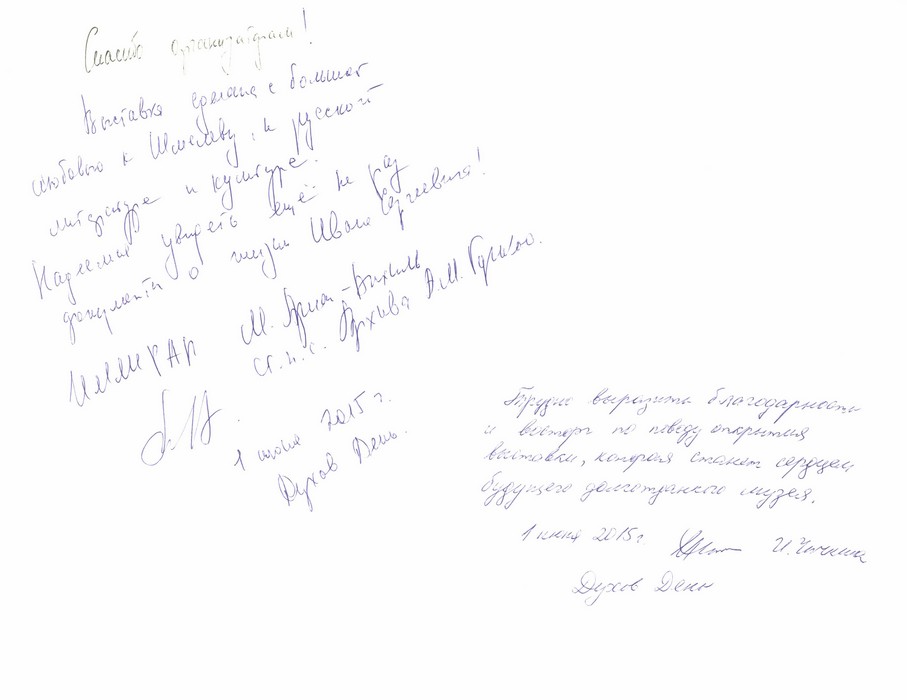 Спасибо организаторам!
Выставка сделана с большой
любовью к Шмелеву, к русской
литературе и культуре.
Надеемся увидеть ещё не раз
документы о жизни Ивана Сергеевича!
ИМЛИ РАН М.
с.н.с. Архива А.М. Горького.
1 июня 2015 г.
Духов День.
Трудно выразить благодарность
и восторг по поводу открытия
выставки, которая станет сердцем
будущего долгожданного музея.
1 июня 2015 г. И.
Духов День